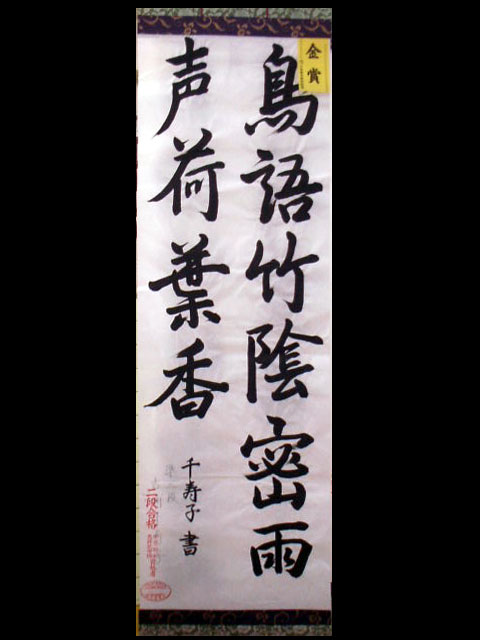 金賞
鳥語竹陰密雨
声荷葉香
千寿子書
二段合格